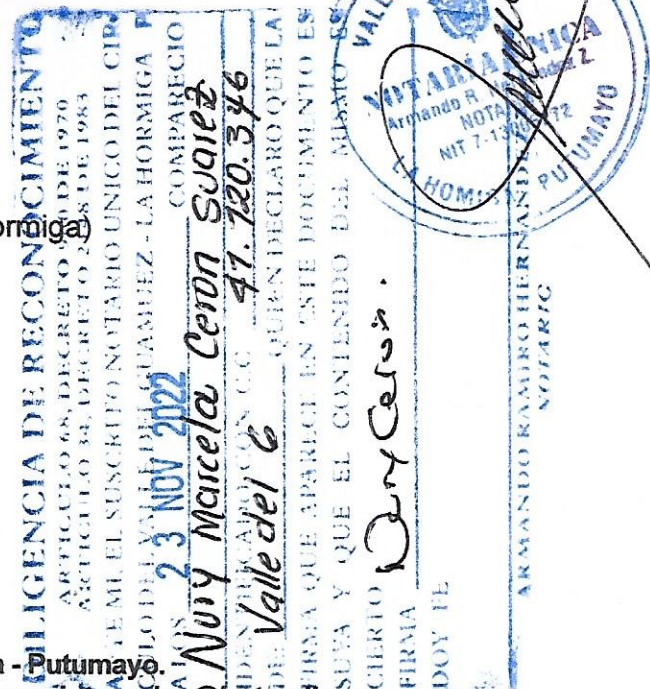 ormiga)
a - Putumayo.
DILIGENCIA DE RECONOCIMIENTO
ARTICULO 68, DECRETO DE 1970
ARTICULO 34, DECRETO DE 1983
TE MI EL SUSCRITO NOTARIO UNICO DEL CIR
CULO DEL VALLE DEL GUAMUEZ - LA HORMIGA P
A LOS 23 NOV 2022 COMPARECIO
Nury Marcela Ceron Suarez
IDENTIFICADO CON C.C. 41.120.346
DE Valle del G QUIEN DECLARO QUE LA
FIRMA QUE APARECE EN ESTE DOCUMENTO ES
SUYA Y QUE EL CONTENIDO DEL MISMO ES
CIERTO
FIRMA Nury Ceron.
DOY FE
ARMANDO RAMIRO HERNANDE
NOTARIO
VALL
NOTARIA UNICA
Armando R
NOTA
NIT 7.13
LA HOMI PUTUMAYO